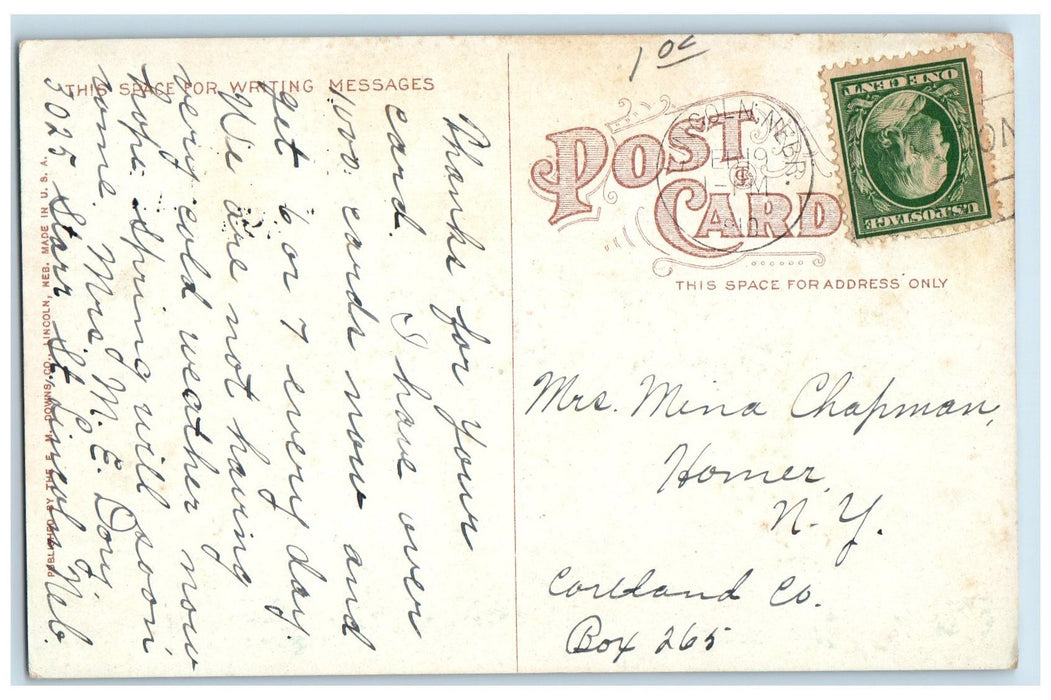 THIS SPACE FOR WRITING MESSAGES
Thanks for your
card. I have over
1100. cards now and
get 6 or 7 every day.
We are not having
very cold weather now
hope spring will soon
come. Mrs. M. E. Doty.
3025 Starr St. Lincoln Neb.
PUBLISHED BY THE E. M. DOWNS CO., LINCOLN, NEB. MADE IN U. S. A.
10c
POST
CARD
COLN, NEBR.
19
M
10
ONE CENT
U.S. POSTAGE
THIS SPACE FOR ADDRESS ONLY
Mrs. Mina Chapman,
Homer,
N. Y.
Cortland Co.
Box 265